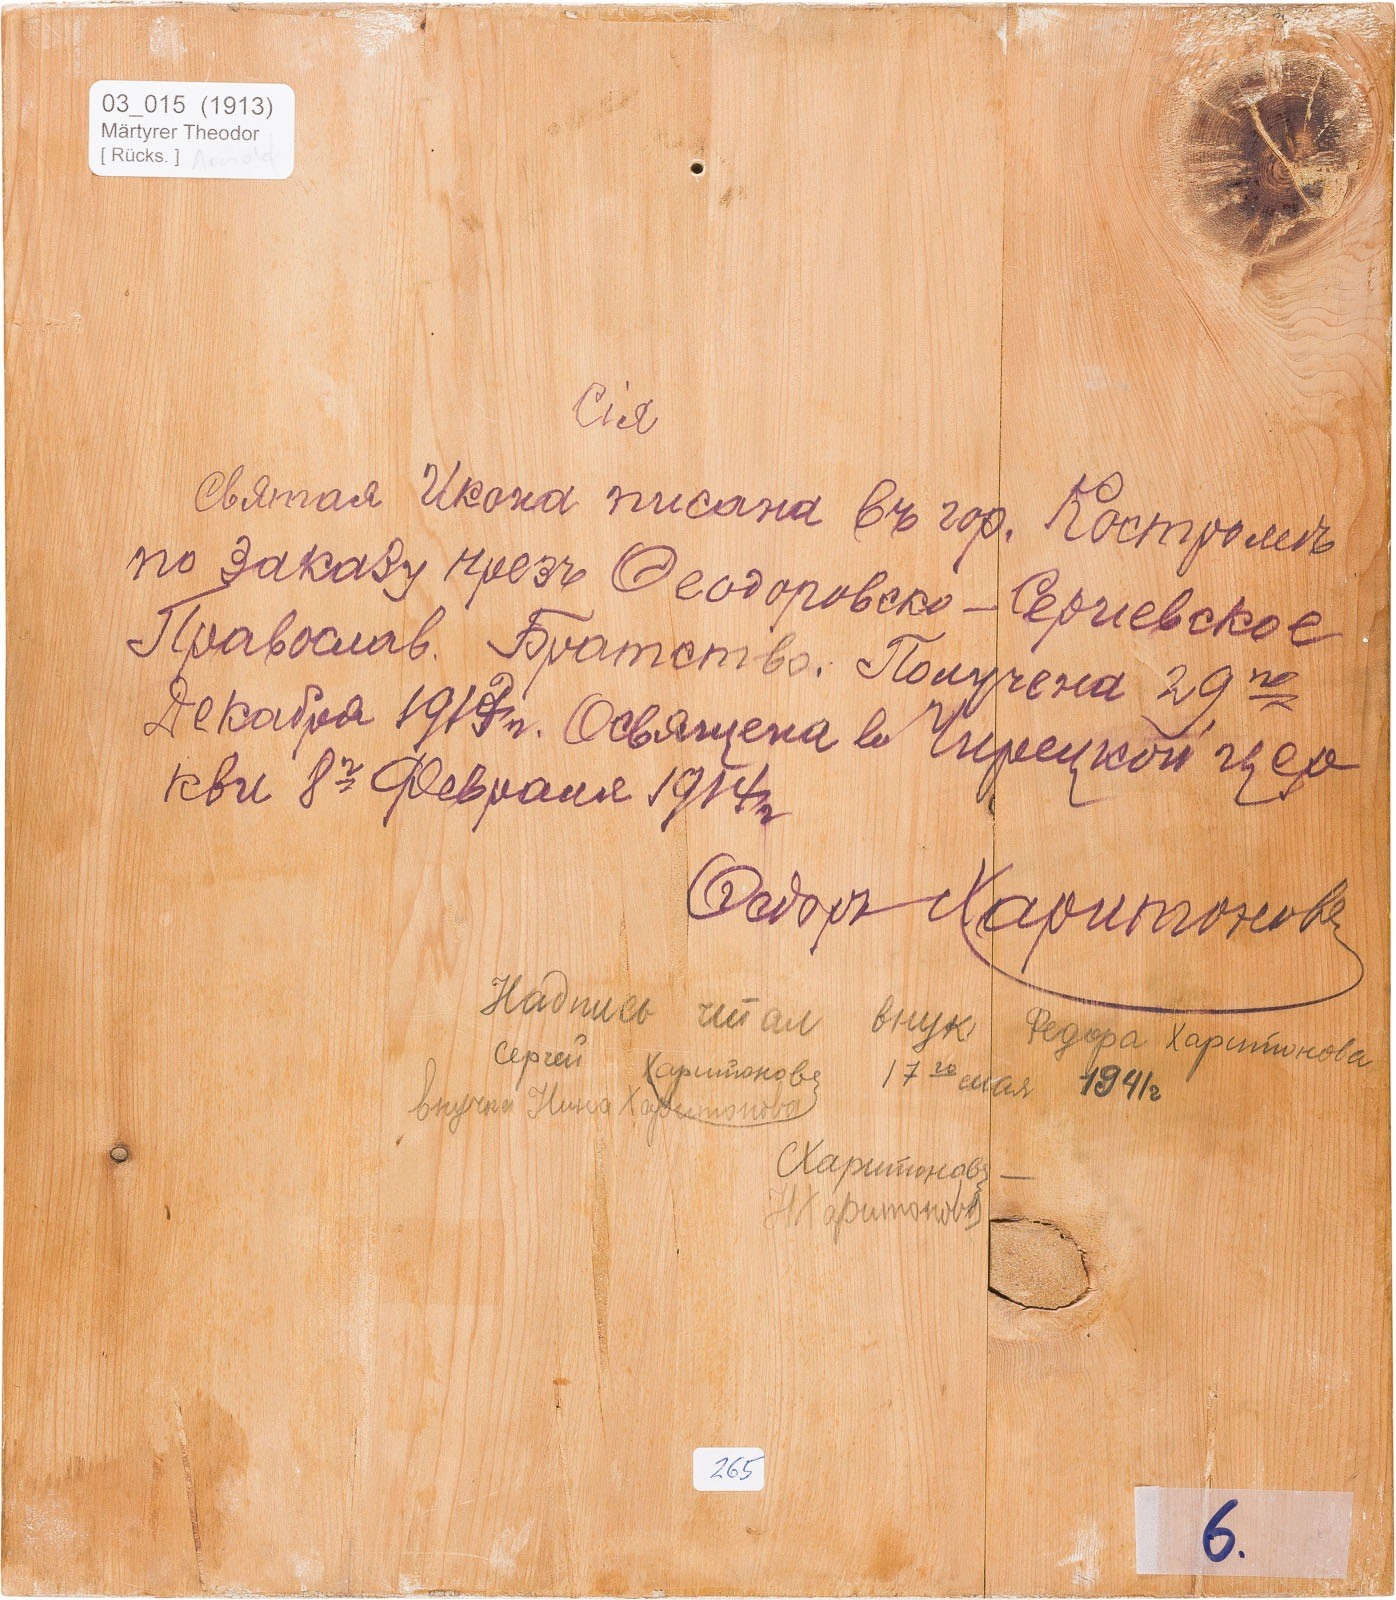 03_015 (1913)
Märtyrer Theodor
[ Rücks. ] Arnold
Сія
Святая Икона писана въ гор. Костромѣ
по заказу чрезъ Ѳеодоровско-Сергіевское
Православ. Братство. Получена 29го
Декабря 1913г. Освящена въ Чирецкой цер
кви 8г Февраля 1914г
Ѳедоръ Харитоновъ
Надпись читал внук Федора Харитонова
Сергей Харитоновъ 17го мая 1941г
внучка Нина Харитонова
СХаритоновъ
НХаритонова
265
6.